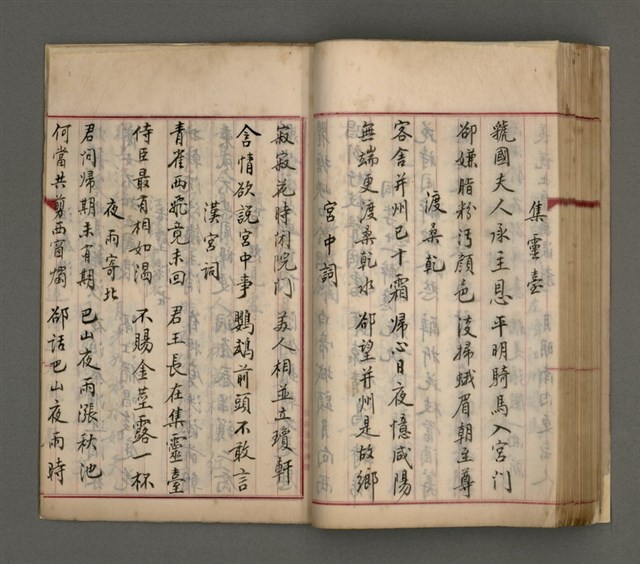 集靈臺
虢國夫人承主恩 平明騎馬入宮門
卻嫌脂粉汚顏色 淡掃蛾眉朝至尊
渡桑乾
客舍并州已十霜 歸心日夜憶咸陽
無端更渡桑乾水 卻望并州是故鄉
宮中詞
寂寂花時閉院門 美人相並立瓊軒
含情欲說宮中事 鸚鵡前頭不敢言
漢宮詞
青雀西飛竟未回 君王長在集靈臺
侍臣最有相如渴 不賜金莖露一杯
夜雨寄北
君問歸期未有期 巴山夜雨漲秋池
何當共剪西窗燭 卻話巴山夜雨時